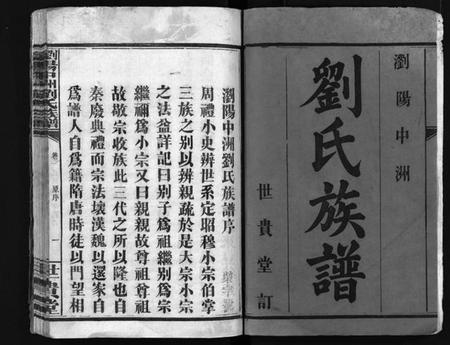 瀏陽中洲
劉氏族譜
世貴堂訂
瀏陽中洲劉氏族譜序
周禮小史辨世系定昭穆小宗伯掌
三族之別以辨親疏於是大宗小宗
之法益詳記曰別子為祖繼別為宗
繼禰為小宗又曰親親故尊祖尊祖
故敬宗收族此三代之所以隆也自
秦廢典禮而宗法壞漢魏以還家自
為譜人自為籍隋唐時徒以門望相
瀏陽中洲劉氏族譜
卷
原序
一
世貴堂